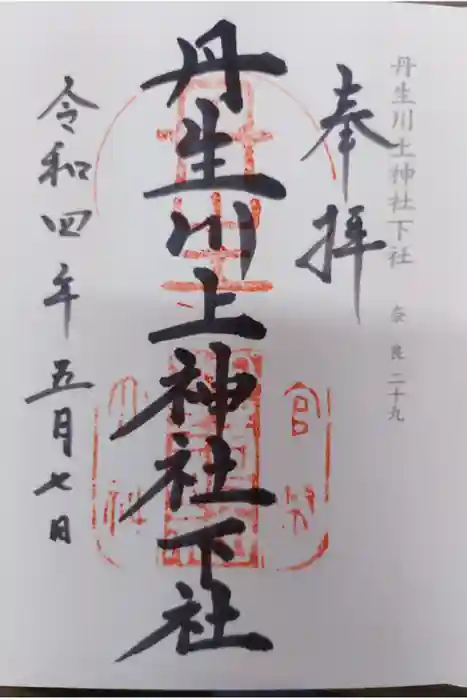 丹生川上神社下社 奈良二十九
奉拝
丹生川上神社下社
令和四年五月七日